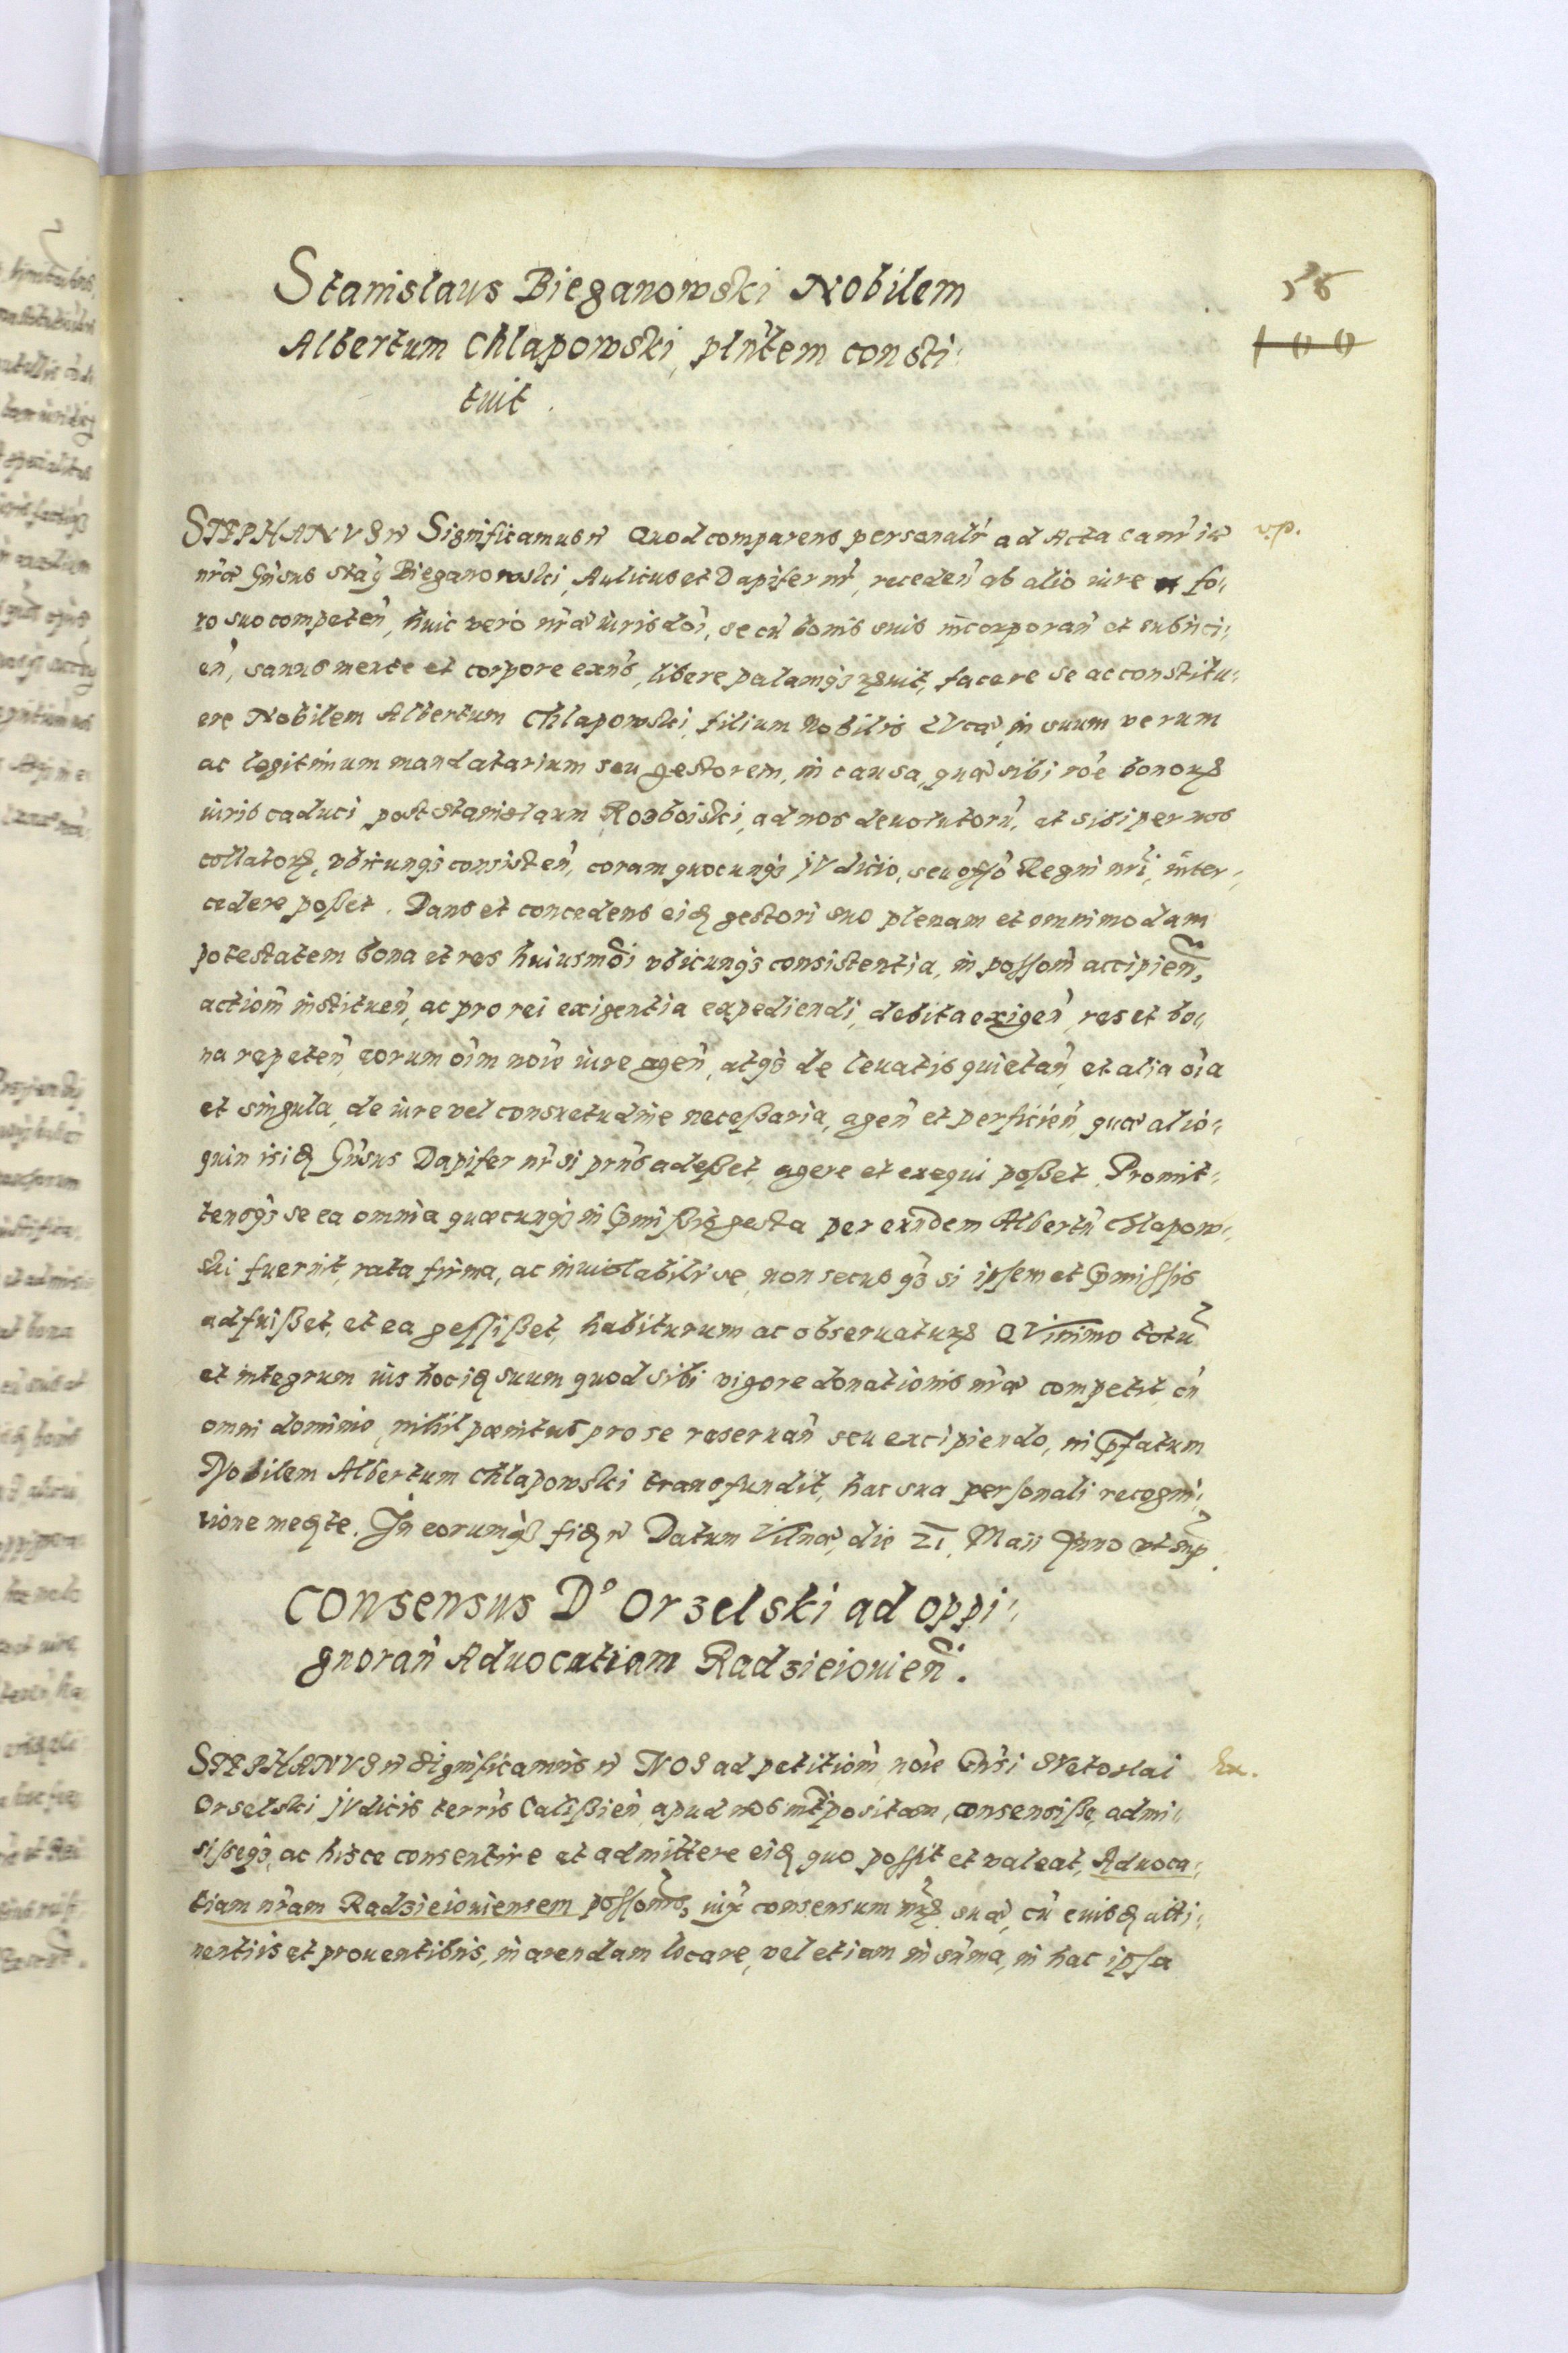 Stanislaus Bieganowski Nobilem
Albertum Chlapowski, plñtem consti:
tuit.
100
STEPHANVS etc Significamus etc Quod comparens personalr ad Acta Canr̃iæ v.p.
nr̃æ Gñsus Sta͂ Bieganowski, Aulicus et Dapifer nr̃, receden̄ ab alio iure et fo:
ro suo competen̄, huic vero nr̃æ iurisdoĩ, se cũ bonis suis incorporan̄ et subiici:
en̄, sanus mente et corpore exñs, libere palamq₃ r̃uit, facere se ac constitu:
ere Nobilem Albertum Chlapowski, filium Nobilis LVcæ, in suum verum
ac legitimum mandatarium seu gestorem, in causa, quæ sibi rõe bonoꝝ
iuris caduci post Stanislaum Rozboiski, ad nos devolutorũ, et sibi per nos
collatoꝝ, vbicunq₃ consisten̄, coram quocunq₃ jVdicio, seu offõ Regni nr̃i, inter:
cedere poßet. Dans et concedens eid̃ gestori suo plenam et omnimodam
potestatem bona et res huiusmõi vbicunq₃ consistentia, in possom̃ accipien̄,
actiom̃ instituen̄, ac pro rei exigentia expediendi, debita exigen̄, res et bo:
na repeten̄, eorum oĩm noĩe iure agen̄, atq₃ de levatis quietan̄, et alia oĩa
et singula, de iure vel consuetudine neceßaria, agen̄ et perficien̄, quæ alio:
quin isid̃ Gñsus Dapifer nr̃ si prñs adeßet, agere et exequi poßet. Promit:
tensq₃ se ea omnia quæcunq₃ in p̃mißis gesta per eundem Albertũ Chlapow:
ski fuerint, rata firma, ac inviolabili se, non secus q₃ si ipsemet p̃missis
adfuißet, et ea gessißet, habiturum ac observaturꝝ QVinimo totũ
et integrum ius hocid̃ suum quod sibi vigore donationis nr̃æ competit, cũ
omni dominio, nihil pœnitus pro se reservan̄ seu excipiendo, in p̃fatum
Nobilem Albertum Chlapowski transfundit, hac sua personali recogni:
tione med̃te. In eorumq₃ fid̃ etc Datum Vilnæ, die 21. Maii Anno vt sup̃.
Consensus D° Orzelski ad oppi:
gnoran̄ Advocatiam Radzieiovien̄.
STEPHANVS etc Significamus etc NOS ad petitiom̃ noĩe Gñsi Svetoslai Ex.
Orselski jVdicis terris Calißien̄, apud nos int̃positam, consensiße, admi:
sißeq₃, ac hisce consentire et admittere eid̃ quo possit et valeat, Advoca:
tiam nr̃am Radzieioviensem possonis, iux̃ consensum suæ, cũ eiusd̃ atti:
nentiis et proventibus, in arendam locare, vel etiam in sum̃a, in hac ipsa